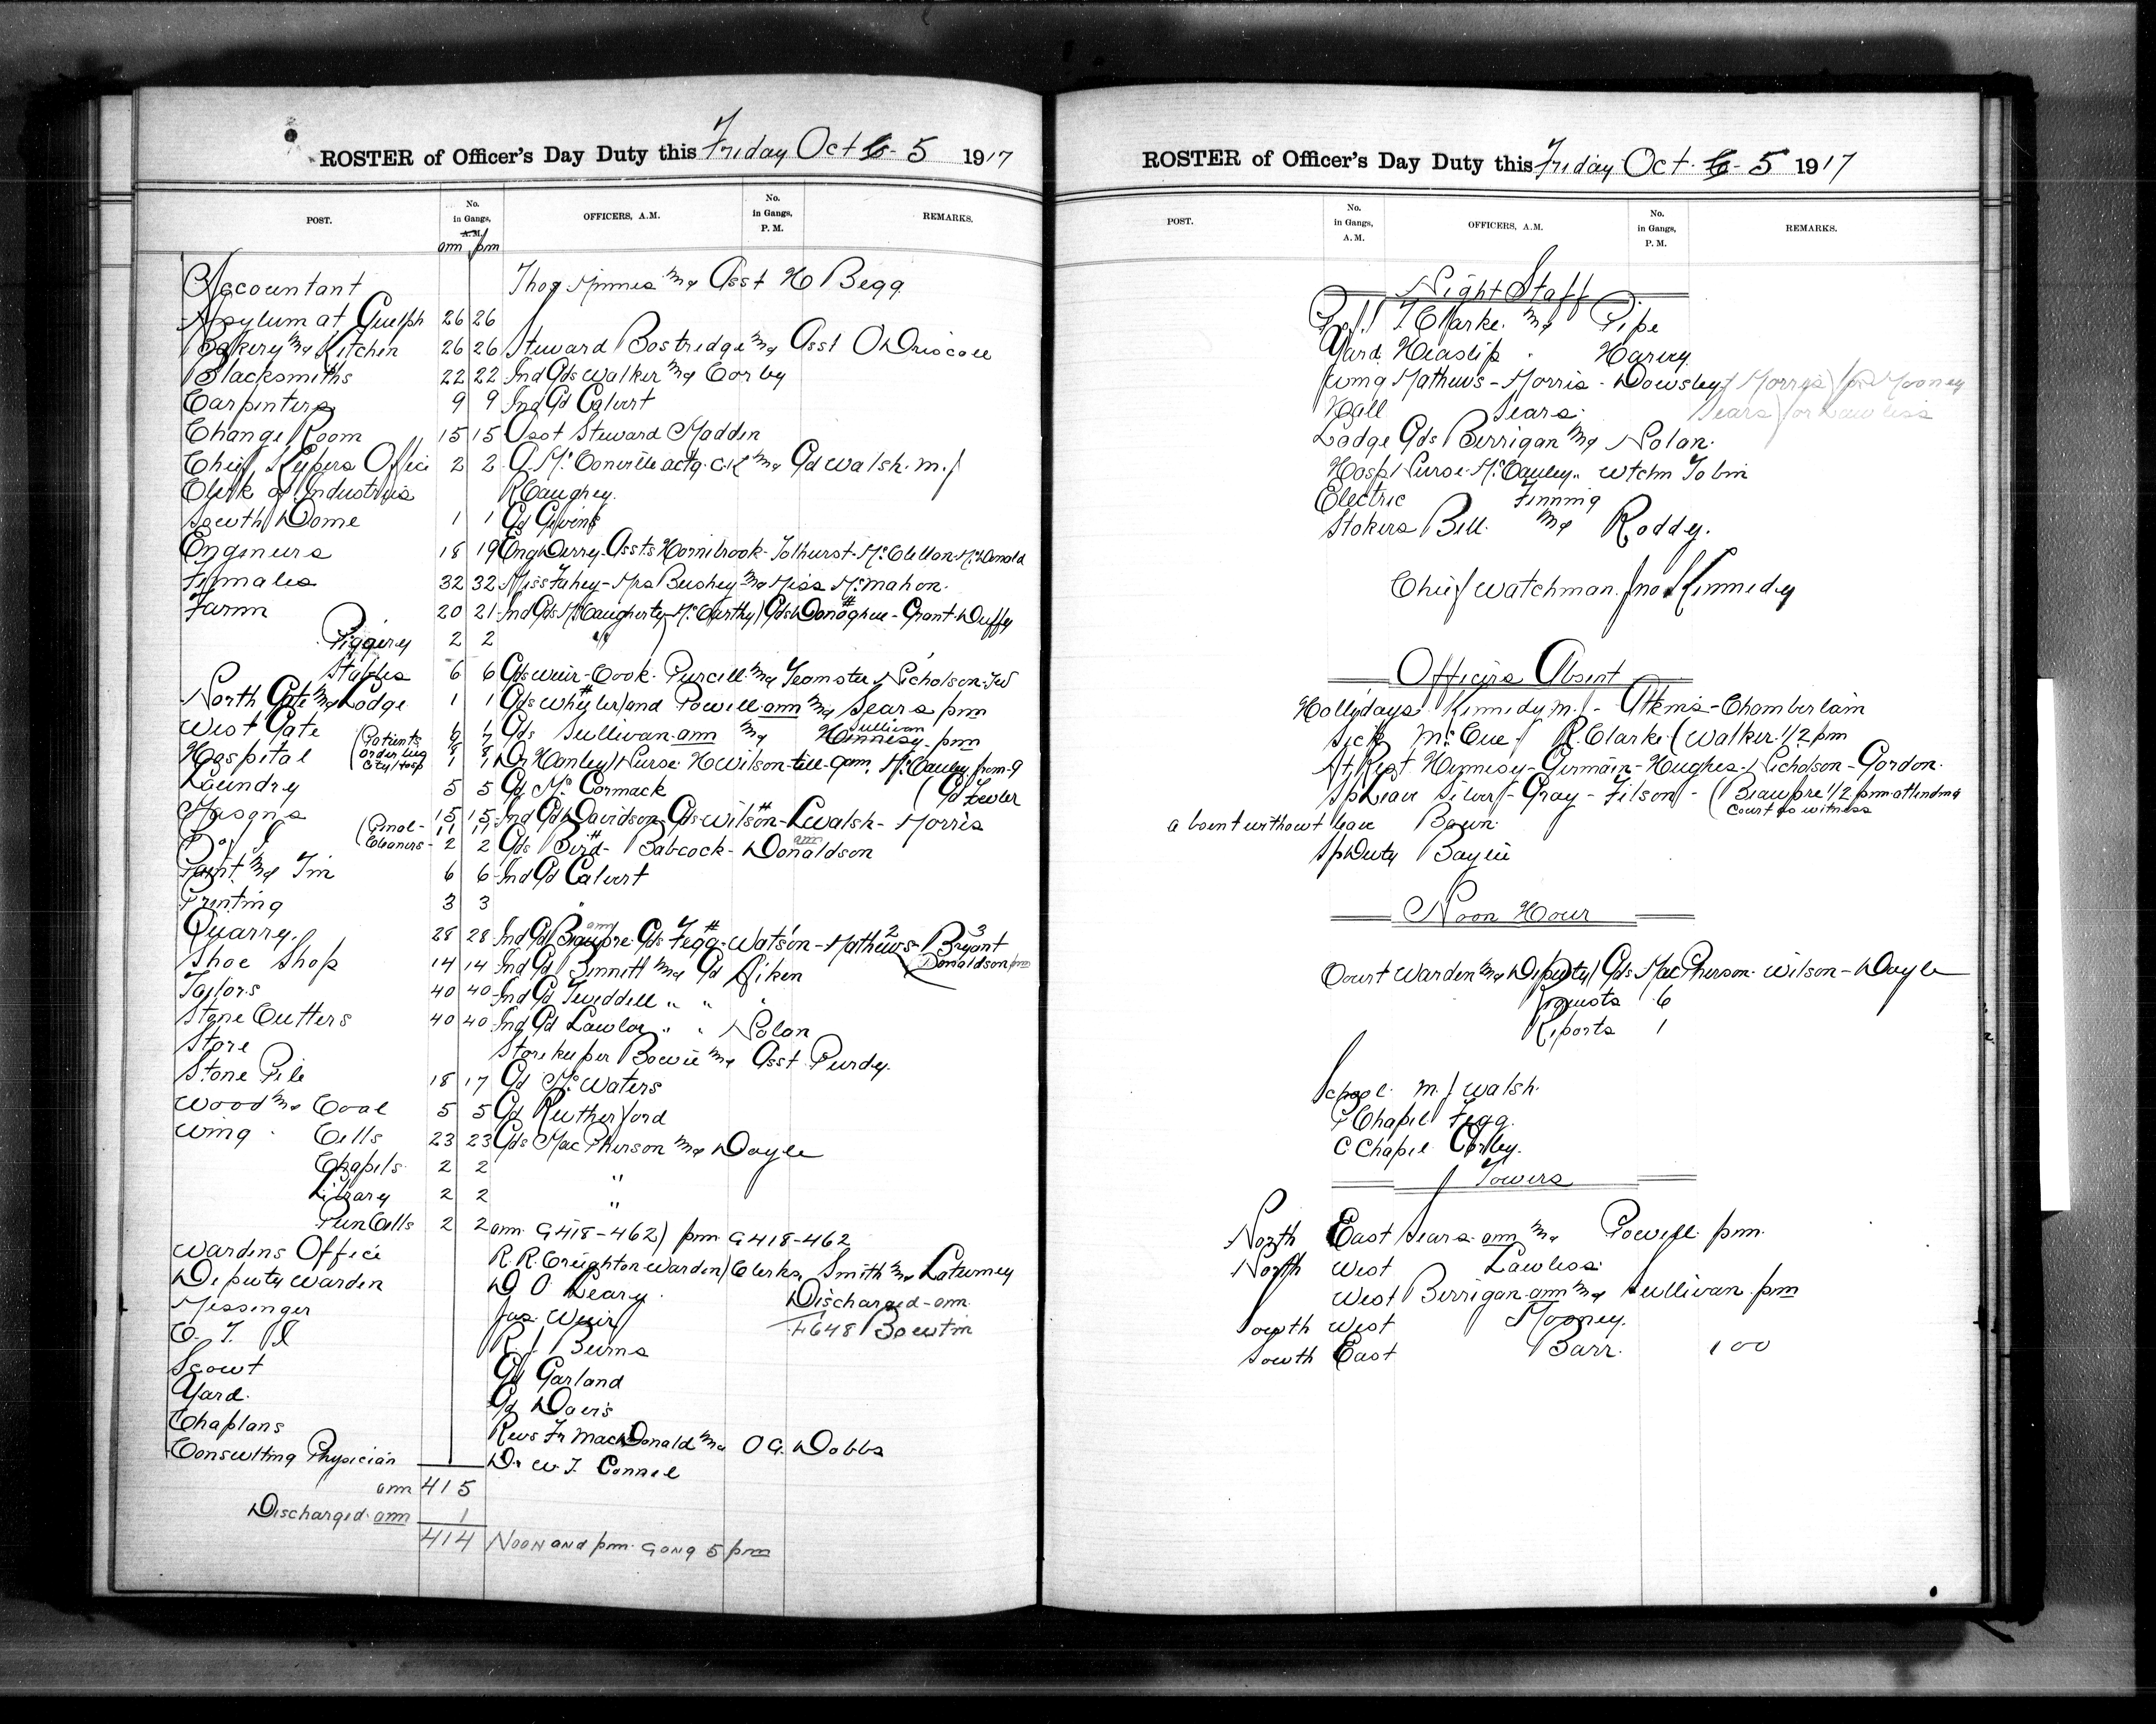 ROSTER of Officer's Day Duty this Friday Oct 6- 5 1917
POST. No. in Gangs, A.M. OFFICERS, A.M. No. in Gangs, P. M. REMARKS.
am pm
Accountant Asst H Begg
Asylum at Guelph 26 26
Bakery and Kitchen 26 26 Steward Bostredge and Asst O Driscoll
Blacksmiths 22 22 Ind Gds Walker and Corby
Carpenters 9 9 Ind Gd Calvert
Change Room 15 15 Asst Steward Madden
Chief Keepers Office 2 2 A. McConville actg. C.K and Gd Walsh. M.J
Clerk of Industries R Caughey.
South Dome 1 1 Gd Givens
Engineers 18 19 Eng Derry. Assts Hornibrook. Tolhurst. McClellan. McDonald
Females 32 32 Miss Fahey - Mrs Bushey and Miss McMahon.
Farm 20 21 Ind Gds McCaugherty. McCarthy) Gds Donoghue - Grant. Duffy
Piggery 2 2 "
Stables 6 6 Gds Weir - Cook. Purcell. and Teamster Nicholson. JW
North Gate and Lodge 1 1 Gds Wheeler and Powell am and Sears pm
West Gate Gds Sullivan am and Hennesy - pm
Sullivan
Hospital (Patients 8 8 Dr Hanley) Nurse H Wilson till 9am, McCauley from 9
orderlies
City Hosp 1 1
Laundry 5 5 Gd McCormack (Gd Fowler
Masons 15 15 Ind Gd Davidson Gds Wilson - L Walsh - Morris
P of I (Penol - 11 11
Cleaners - 2 2 Gds Bird - Babcock - Donaldson
am
Paint and Tin 6 6 Ind Gd Calvert
Printing 3 3 "
Quarry. 28 28 Ind Gd Beaupre Gds Fegg - Watson - Mathews - Bryant
am 1 2 3
Donaldson pm
Shoe Shop 14 14 Ind Gd Bennett and Gd Aiken
Tailors 40 40 Ind Gd Tweddell " "
Stone Cutters 40 40 Ind Gd Lawlor " " Nolan
Store Storekeeper Bowie and Asst Purdy.
Stone Pile 18 17 Gd McWaters
Wood and Coal 5 5 Gd Rutherford
Wing. Cells 23 23 Gds MacPherson and Doyle
Chapels 2 2 "
Library 2 2 "
Pun Cells 2 2 am G418-462) pm G418-462
Wardens Office R. R. Creighton Warden) Clerks, Smith and Laturney
Deputy Warden D O Leary.
Discharged - am
Messenger Jas Weir
F648 Boutin
C. T. P R. J Burns
Scout Gd Garland
Yard. Gd Davis
Chaplans Revs Fr MacDonald and O G. Dobbs
Consulting Physician Dr W. T. Connel
am 415
Discharged. am 1
414 Noon and pm. Gang 5 pm
ROSTER of Officer's Day Duty this Friday Oct. 6- 5 1917
POST. No. in Gangs, A.M. OFFICERS, A.M. No. in Gangs, P. M. REMARKS.
Night Staff
T. Clarke. and Pipe
Yard Heaslip " Harvey
Wing Mathews - Morris - Dowsley (Morris) for Mooney
Hall Sears. Sears) for Lawless
Lodge Gds Berrigan and Nolan.
Hosp Nurse McCauley " Wtchn Tobin
Electric Finning
Stokers Bell. and Roddy.
Chief Watchman. Jno Kennedy
Officers Absent
Hollydays. Kennedy M.J - Atkins - Chamberlain
Sick McCue) R. Clarke (Walker 1/2 pm
At Rest Hennesy - Germain - Hughes. Nicholson - Gordon.
Sp Leave Silver - Gray - Filson - (Beaupre 1/2 pm attending
Court as witness
absent without leave Bawn.
Sp Duty Baylie
Noon Hour
Court Warden and Deputy) Gds MacPherson. Wilson - Doyle
Requests 6
Reports 1
School. M. J Walsh.
P Chapel Fegg.
C Chapel Corby.
Towers
North East Sears am and Powell pm.
North West Lawless.
West Berrigan am and Sullivan pm
South West Mooney.
South East Barr. 100